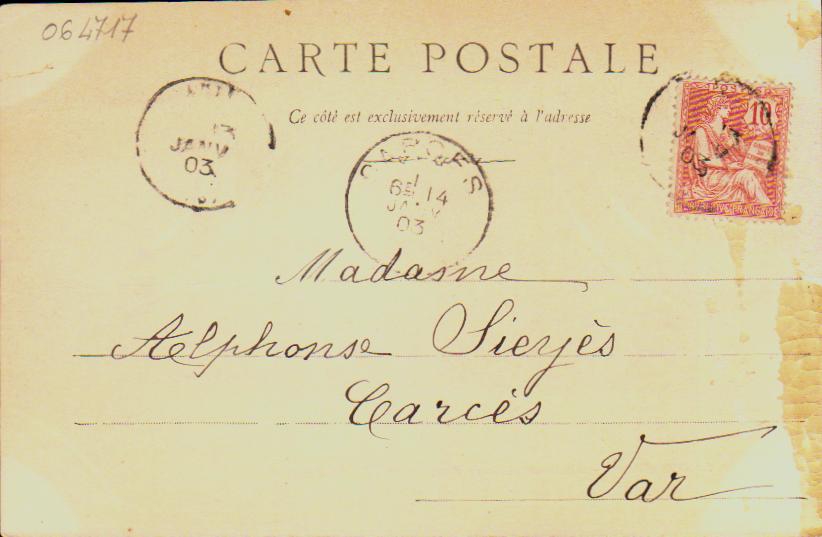 064717
CARTE POSTALE
Ce côté est exclusivement réservé à l'adresse
13
JANV
03
CARCES
6E 14
JANV
03
10
13
03
Madame
Alphonse Sieyès
Carcès
Var